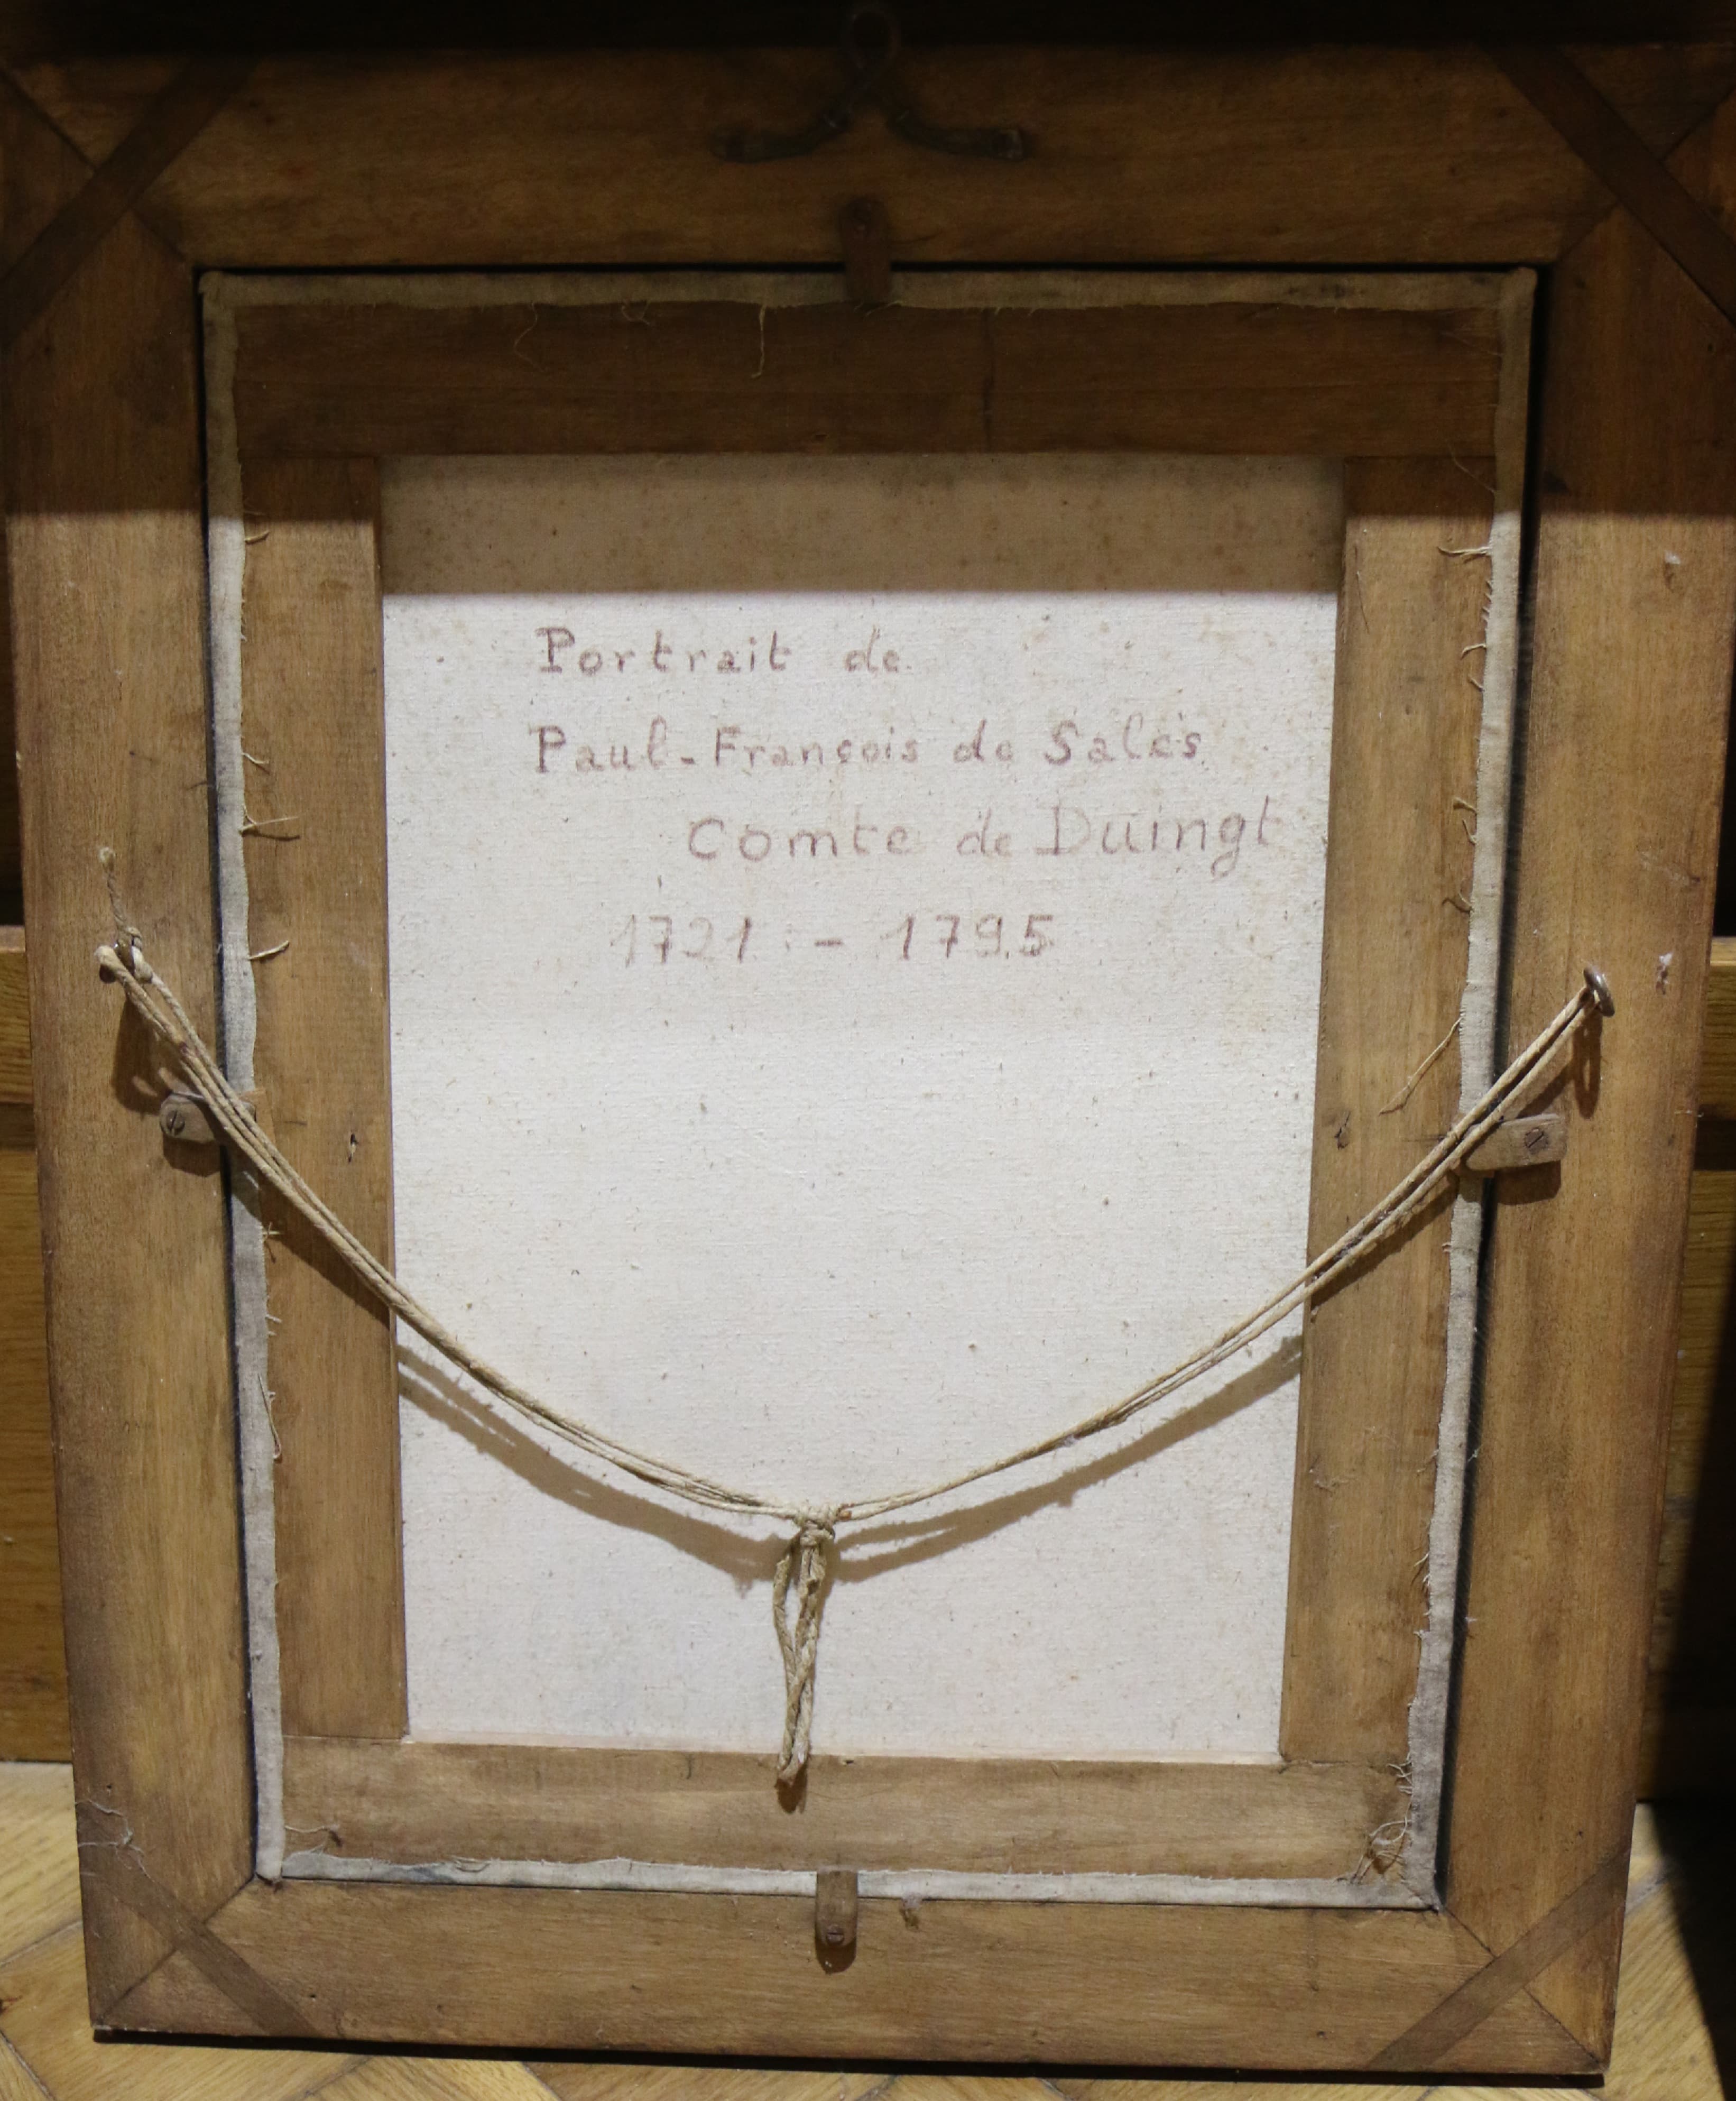 Portrait de
Paul-François de Sales
Comte de Duingt
1721 - 1795